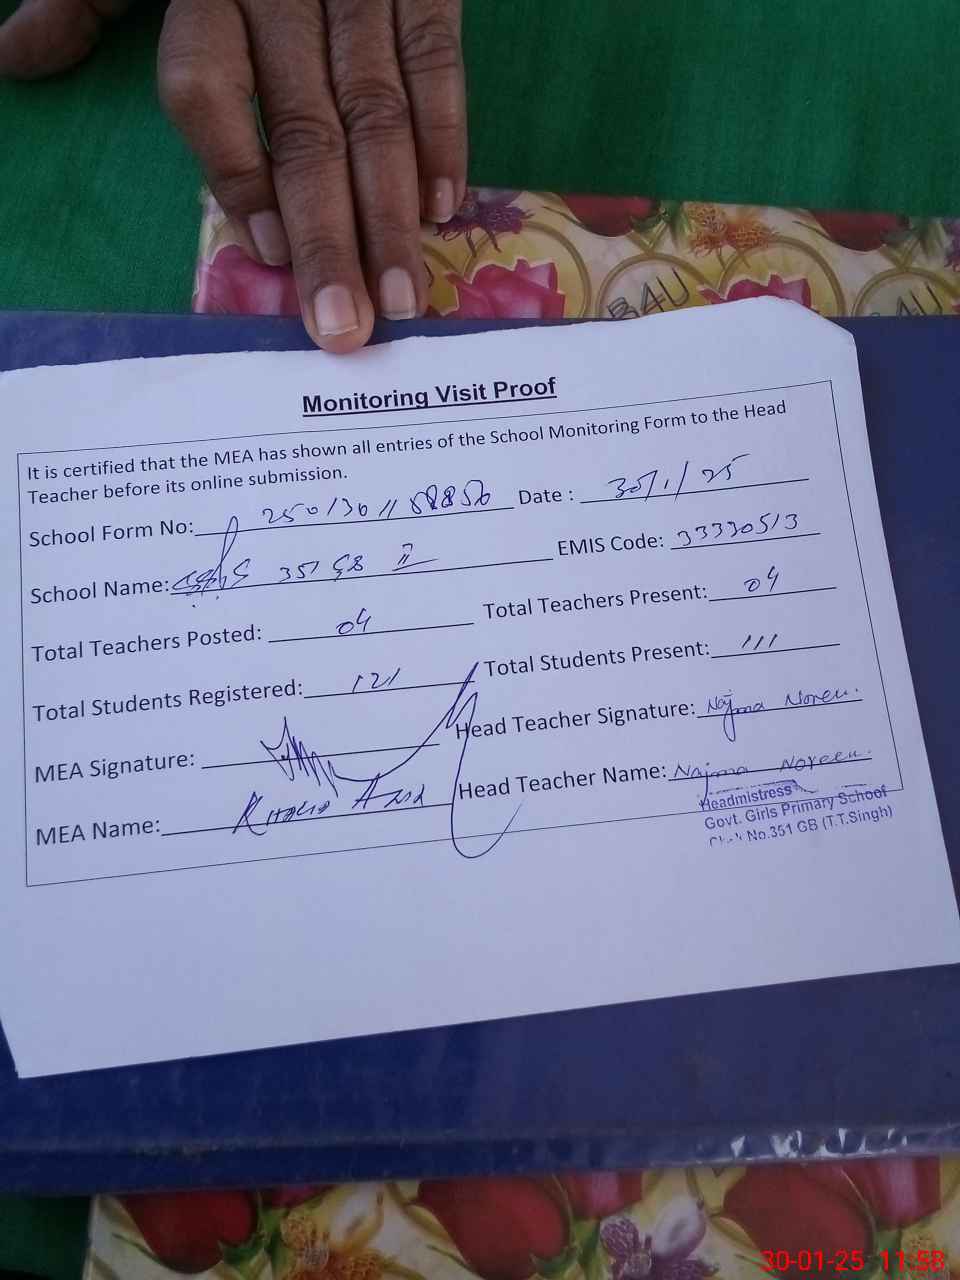 B4U
B4U
Monitoring Visit Proof
It is certified that the MEA has shown all entries of the School Monitoring Form to the Head
Teacher before its online submission.
School Form No: Date : 30/1/25
School Name: 351 GB II EMIS Code: 33330513
Total Teachers Posted: 04 Total Teachers Present: 04
Total Students Registered: 121 Total Students Present: 111
MEA Signature: Head Teacher Signature: Najma Noreen.
MEA Name: Khalid Head Teacher Name: Najma Noreen.
Headmistress
Govt. Girls Primary School
Chak No.351 GB (T.T.Singh)
30-01-25 11:58